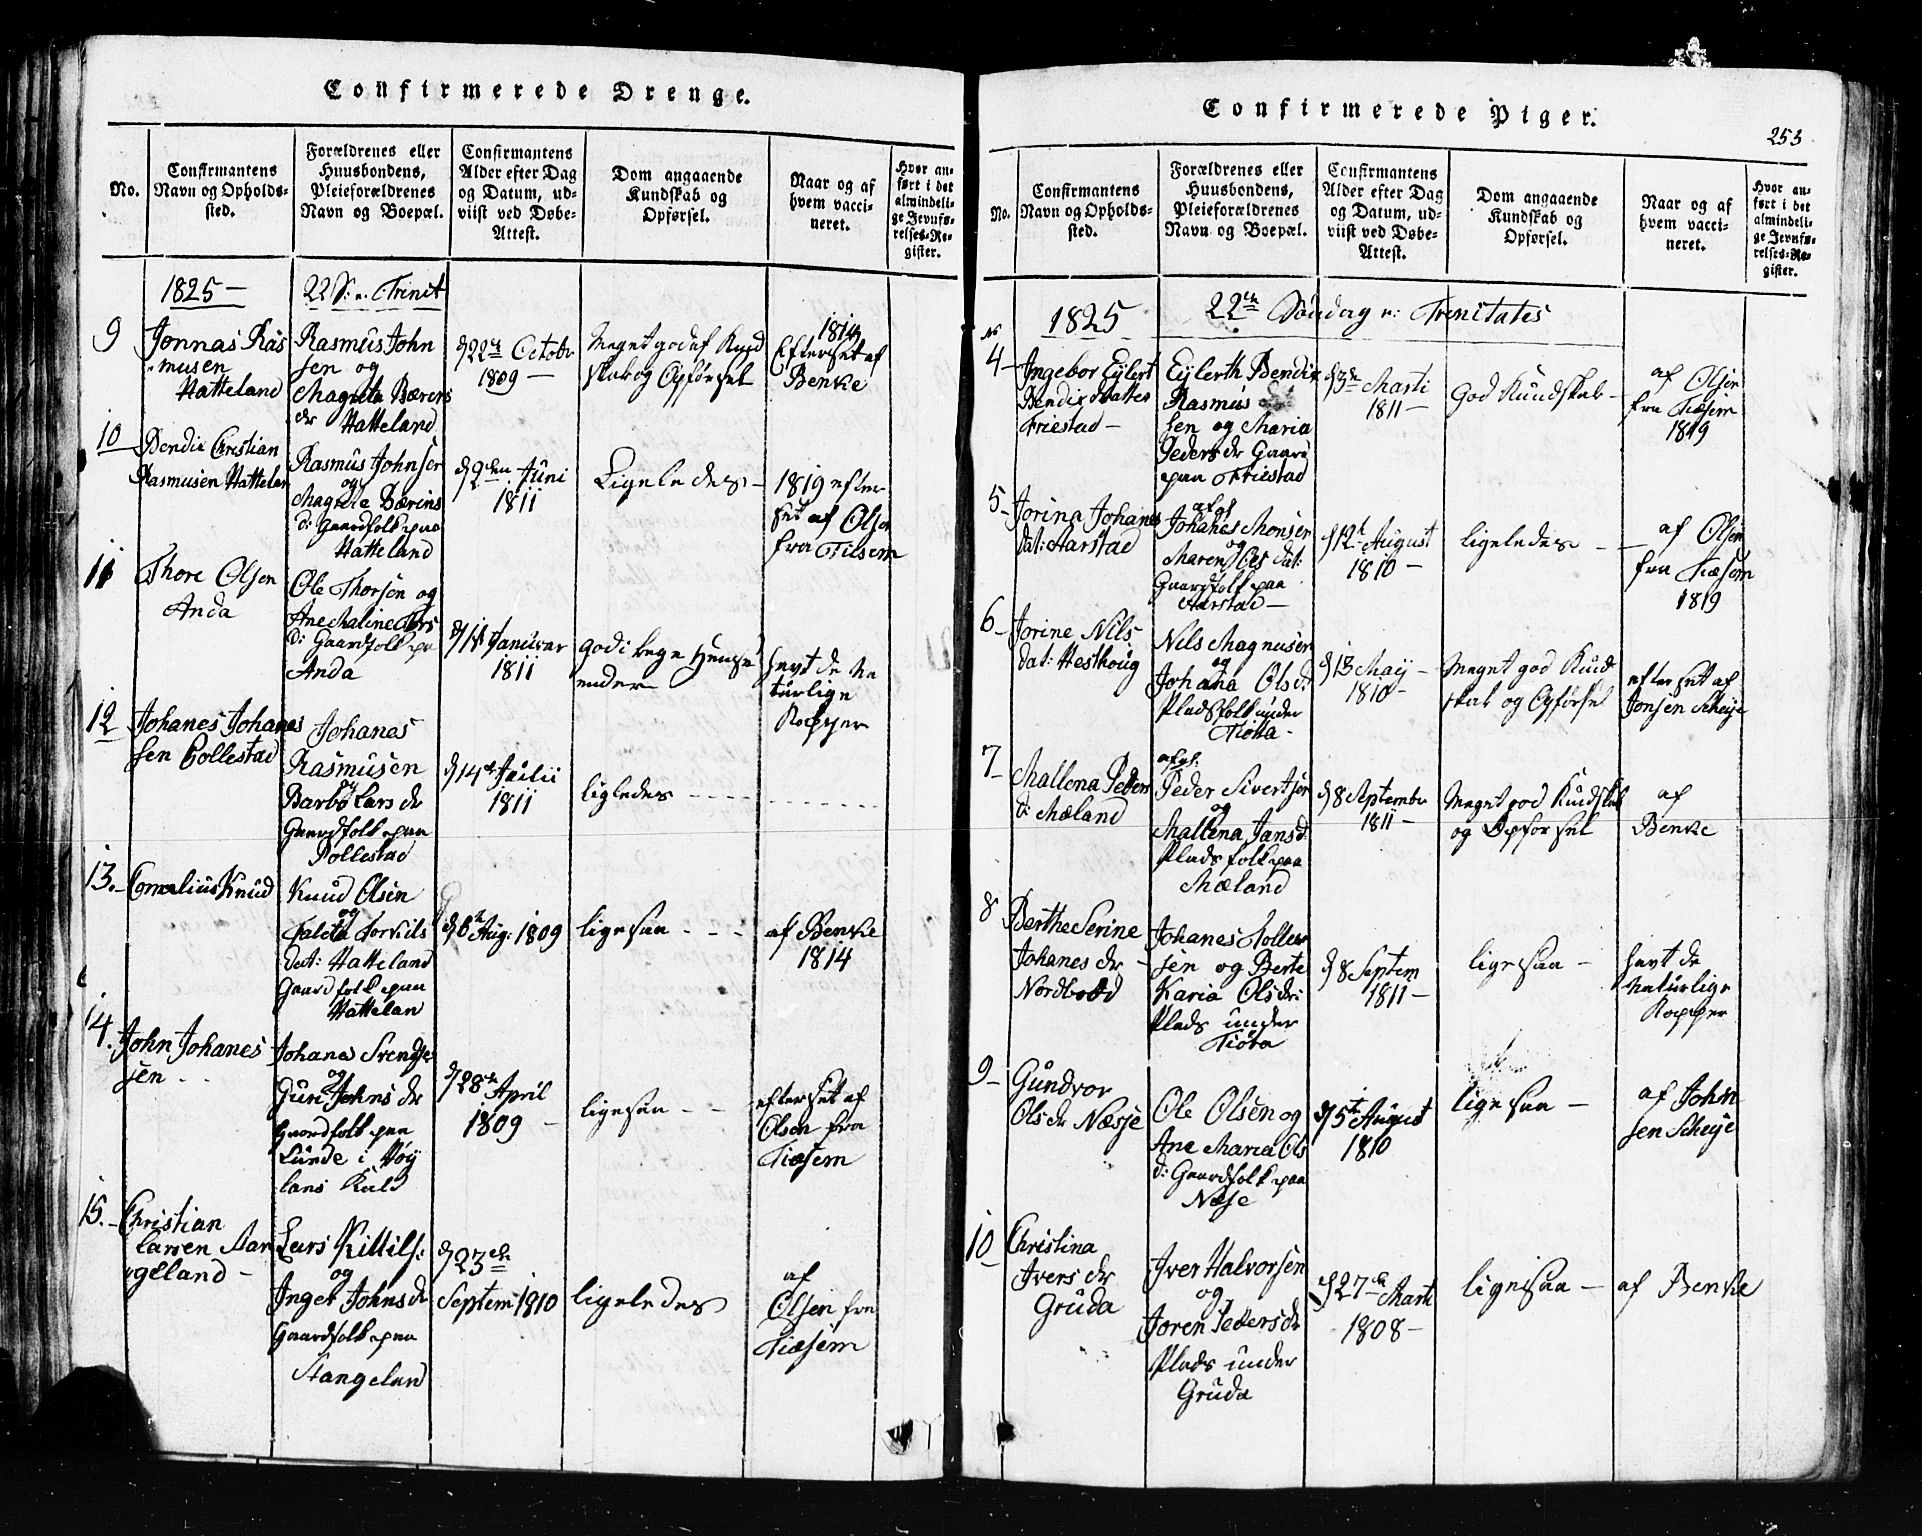 Confirmerede Drenge.
No.
Confirmantens
Navn og Opholds-
sted.
Forældrenes eller
Huusbondens,
Pleieforældrenes
Navn og Boepæl.
Confirmantens
Alder efter Dag
og Datum, ud-
viist ved Døbe-
Attest.
Dom angaaende
Kundskab og
Opførsel.
Naar og af
hvem vacci-
neret.
Hvor an-
ført i det
almindeli-
ge Jevnfø-
relses-Re-
gister.
1825 —
22 S: n. Trinit
9
Jonnas Ras
musen
Hatteland
Rasmus John
sen og
Magreta Bærens
dr Hatteland
d 22de Octobr
1809 —
Meget godef Kund
skab og Opførsel
1814
Efterset af
Benke
10
Bendix Christian
Rasmusen Hattelan
Rasmus Johnsen
og
Magrete Bærins
d: Gaardfolk paa
Hatteland
d 2den Juni
1811
Ligeledes —
1819 efter
set af Olsen
fra Tiesem
11
Thore Olsen
Anda
Ole Thorsen og
Ane Maline Tors
d: Gaardfolk pa
Anda
d 11te Januar
1811
god i bege Hense
ender
havt de na
turlige
Kopper
12
Johanes Johanes
sen Pollestad
Johanes
Rasmusen
og
Barbo Lars dr
Gaardfolk paa
Pollestad
d 14de Julii
1811
ligledes - - - -
13. –
Cornelius Knud
Knud Olsen
og
Torkils
dat: Hatteland
Gaardfolk paa
Hattelan
d 6te Aug: 1809
ligesaa - - -
af Benke
1814
14.
John Johanes
sen - -
Johanes Svendse
og
Guri Johns dr
Gaardfolk paa
Lunde i Høy
lans Kald
d 28de April
1809 —
ligesaa - -
efterset af
Olsen fra
Tiæsem
15. –
Christian
larsen Aan
geland –
Lars Kittils:
og
Inger Johnsdr
Gaardfolk paa
Aangeland
d 23de
Septem 1810
ligeledes
af
Olsen fra
Tiæsem
Confirmerede Piger.
253
No.
Confirmantens
Navn og Opholds-
sted.
Forældrenes eller
Huusbondens,
Pleieforældrenes
Navn og Boepæl.
Confirmantens
Alder efter Dag
og Datum, ud-
viist ved Døbe-
Attest.
Dom angaaende
Kundskab og
Opførsel.
Naar og af
hvem vacci-
neret.
Hvor an-
ført i det
almindeli-
ge Jevnfø-
relses-Re-
gister.
No
1825
22de Søndag n: Trinitates
4 –
Ingebor Eylert
Bendix Datter
Friestad –
Eylerth Bendix
Rasmus
sen og Maria
Peders dr Gaard
paa Friestad
d 3de Marti
1811 –
god Kundskab –
af Olsen
fra Tiæsem
1819
5 –
Jorina Johanes
dat: Aarstad
afgl
Johanes Monsen
og
Maren Ols dat:
Gaardfolk paa
Aarstad –
d 12te August
1810 –
ligeledes – –
af Olsen
fra Tiæsem
1819
6 –
Jorine Nils
dat: Hesthoug
Nils Magnusen
og
Johana Ols d:
Pladsfolk under
Tiøtta –
d 13 Maij –
1810 –
Meget god Kund
skab og Opførsel
efterset af
Jonsen Scheije
7 –
Mallena Peders
d: Mæland
afgl:
Peder Sivertsen
og
Mallena Jansd:
Plads folk paa
Mæland
d 8 Septembr
1811 –
Meget god Kundskab
og Opførsel
af
Benke
8
Berthe Serine
Johanes dr –
Nordbrød
Johanes Tolles
sen og Berte
Karia Olsdr:
Plads under
Tiøtta
d 8 Septem
1811 –
ligesaa –
havt de
naturlige
Kopper
9 –
Gundvor
Olsdr Næsje
Ole Olsen og
Ane Maria Ols
d: Gaardfolk paa
Næse
d 5te August
1810
ligesaa –
af John
sen Scheije
10
Christina
Ivers dr
Gruda
Iver Halvorsen
og
Joren Peders dr
Plads under
Gruda
d 27de Marti
1808 –
ligesaa –
af Benke